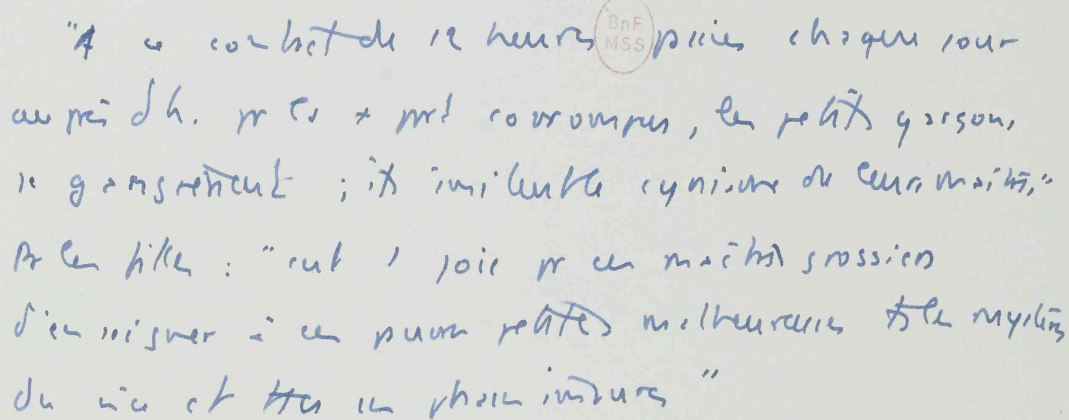 "A ce contact de 12 heures prises chaque jour
auprès d'h. pr les + prt corrompus, les petits garçons
se gangrènent ; ils imitent le cynisme de leurs maîtres."
Pr les filles : " c'est 1 joie pr ces maîtres grossiers
d'enseigner à ces pauvres petites malheureuses ts les mystères
du vice et ttes les phases "
BnF
MSS